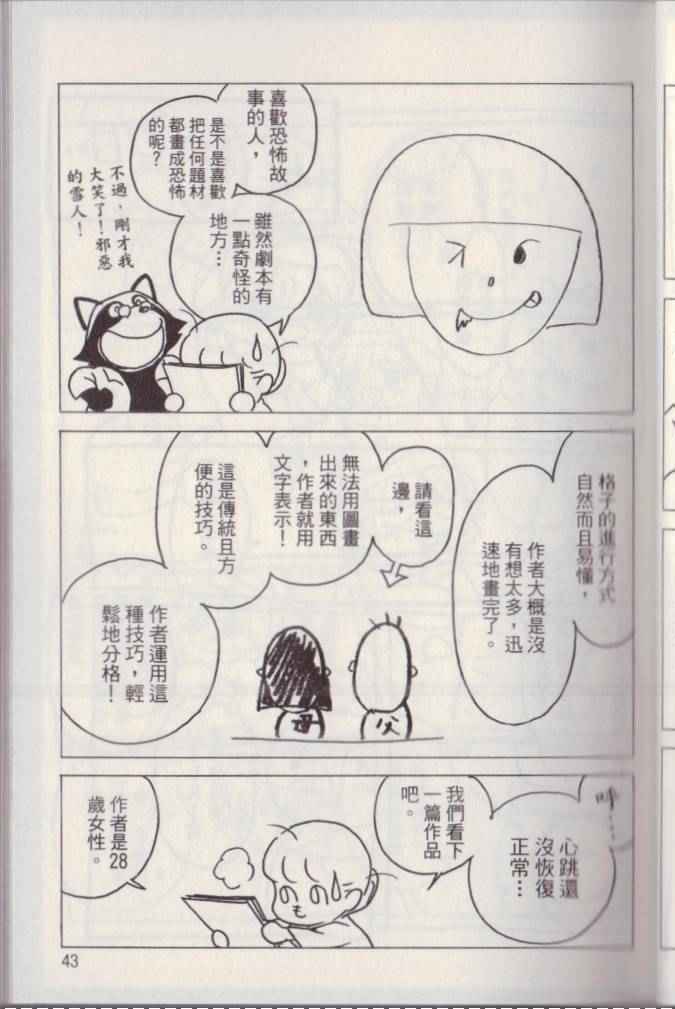 喜歡恐怖故
事的人，
是不是喜歡
把任何題材
都畫成恐怖
的呢？
雖然劇本有
一點奇怪的
地方…
不過，剛才我
大笑了！邪惡
的雪人！
格子的進行方式
自然而且易懂，
作者大概是沒
有想太多，迅
速地畫完了。
請看這
邊，
無法用圖畫
出來的東西
，作者就用
文字表示！
這是傳統且方
便的技巧。
父
母
作者運用這
種技巧，輕
鬆地分格！
心跳還
沒恢復
正常…
我們看下
一篇作品
吧。
作者是28
歲女性。
43